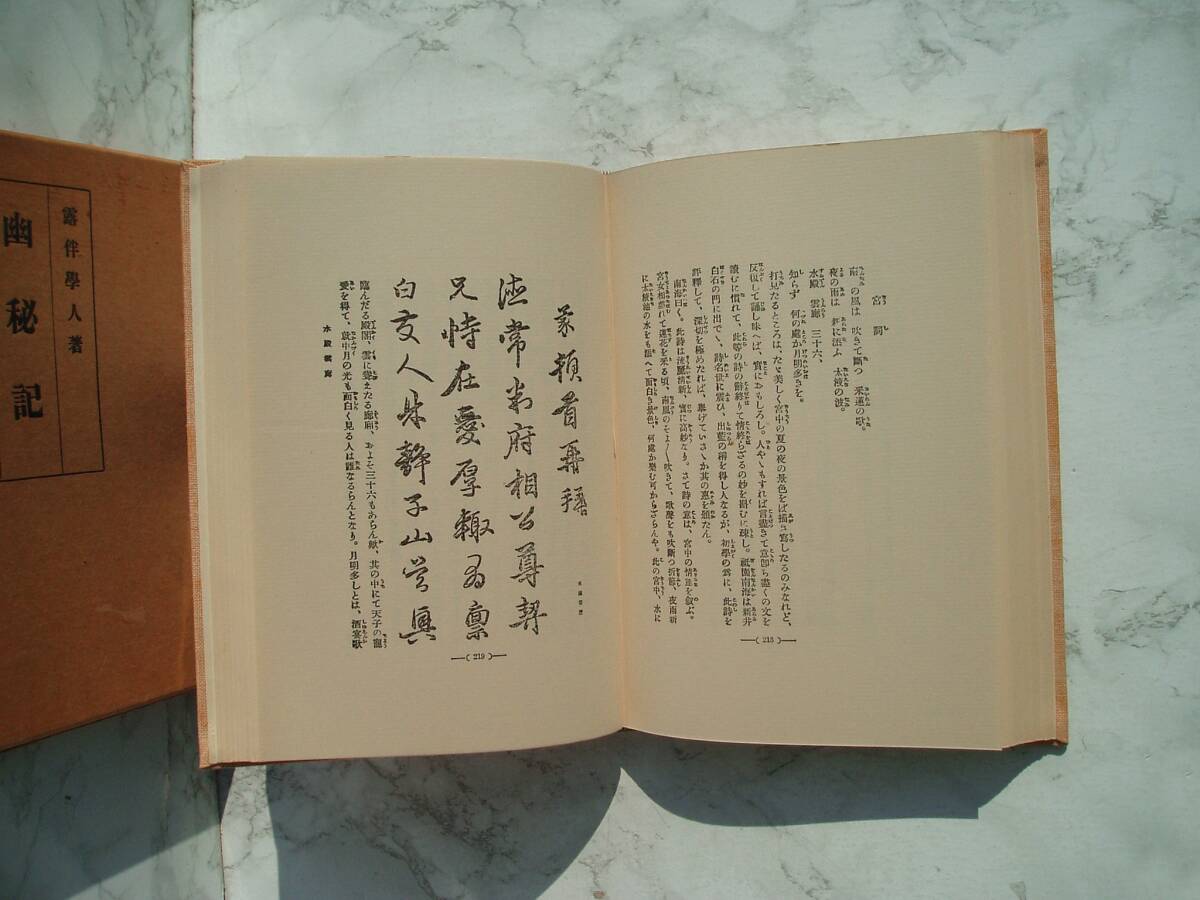 露伴學人著
幽秘記
宮詞
南の風は 吹きて斷つ 采蓮の歌。
夜の雨は 新に添ふ 太液の波。
水殿 雲廊 三十六、
知らず 何の處か月明多きを。
打見たるところは、たゞ美しく宮中の夏の夜の景色をば描き寫したるのみなれど、
反復して誦し味へば、實におもしろし。人やゝもすれば言盡きて意卽ち盡くの文を
讀むに慣れて、此等の詩の辭終りて情終らざるの妙を掬むに疎し。祇園南海は新井
白石の門に出でゝ、詩名世に震ひ、出藍の稱を得し人なるが、初學の爲に、此詩を
評釋して、深切を極めたれば、擧げていさゝか其の惠を頒たん。
南海曰く。此詩は流麗淸新、實に高妙なり。さて詩の意は、宮中の情態を叙ぶ。
宮女相戲れて蓮花を采る頃、南風のそよ〳〵吹きて、歌聲をも吹斷つ折節、夜雨新
に太液池の水をも添へて面白き景色、何處か樂む可からざらんや。此の宮中、水に
—( 218 )—
頓首再拜
德常判府相公尊契
兄恃在愛厚輙有稟
白友人朱靜子山
水殿雲廊
臨んだる殿閣、雲に聳えたる廊廟、およそ三十六もあらん歟、其の中にて天子の寵
愛を得て、就中月の光も面白く見る人は誰なるらんとなり。月明多しとは、酒宴歌
—( 219 )—